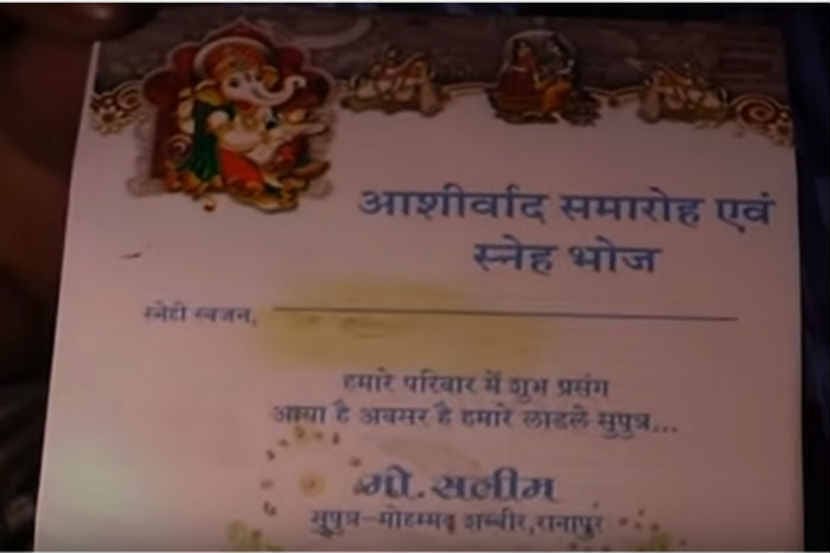 आशीर्वाद समारोह एवं
स्नेह भोज
स्नेही स्वजन,
हमारे परिवार में शुभ प्रसंग
आया है अवसर है हमारे लाडले सुपुत्र...
मो. सलीम
सुपुत्र-मोहम्मद शब्बीर, रानापुर